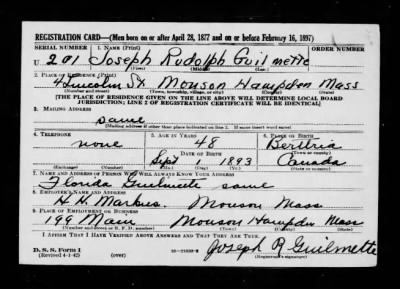 REGISTRATION CARD—(Men born on or after April 28, 1877 and on or before February 16, 1897)
SERIAL NUMBER 1. NAME (Print) ORDER NUMBER
U 201 Joseph Rudolph Guilmette
(First) (Middle) (Last)
2. PLACE OF RESIDENCE (Print)
4 Lincoln St Monson Hampden Mass
(Number and street) (Town, township, village, or city) (County) (State)
[THE PLACE OF RESIDENCE GIVEN ON THE LINE ABOVE WILL DETERMINE LOCAL BOARD
JURISDICTION; LINE 2 OF REGISTRATION CERTIFICATE WILL BE IDENTICAL]
3. MAILING ADDRESS
same
(Mailing address if other than place indicated on line 2. If same insert word same)
4. TELEPHONE 5. AGE IN YEARS 6. PLACE OF BIRTH
none 48
DATE OF BIRTH (Town or county)
Sept 1 1893 Canada
(Exchange) (Number) (Mo.) (Day) (Yr.) (State or country)
7. NAME AND ADDRESS OF PERSON WHO WILL ALWAYS KNOW YOUR ADDRESS
Florida Guilmette same
8. EMPLOYER'S NAME AND ADDRESS
H H Markus. Monson Mass
9. PLACE OF EMPLOYMENT OR BUSINESS
199 Main Monson Hampden Mass
(Number and street or R. F. D. number) (Town) (County) (State)
I AFFIRM THAT I HAVE VERIFIED ABOVE ANSWERS AND THAT THEY ARE TRUE.
Joseph R Guilmette
D. S. S. Form 1
(Revised 4-1-42) (over) (Registrant's signature)